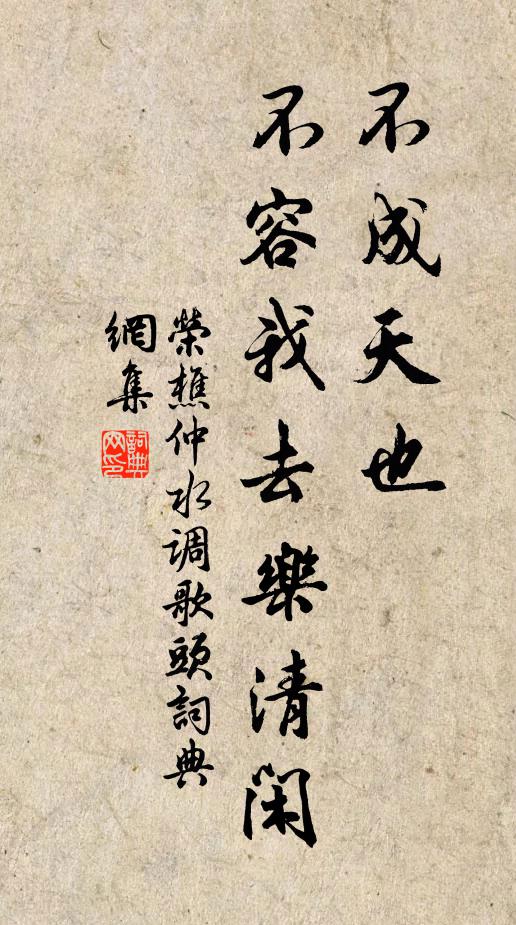 不成天也
不容我去樂清閑
榮樵仲水调歌頭詞典
網集
詞典网印